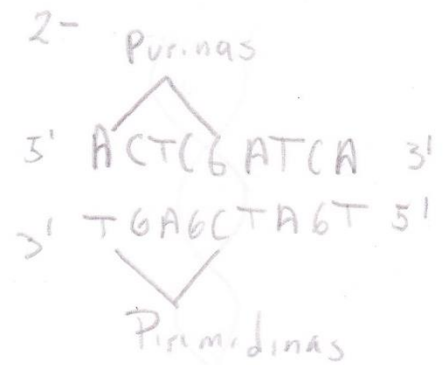 2-
Purinas
5' ACTCG ATCA 3'
3' TGAGCTAGT 5'
Pirimidinas